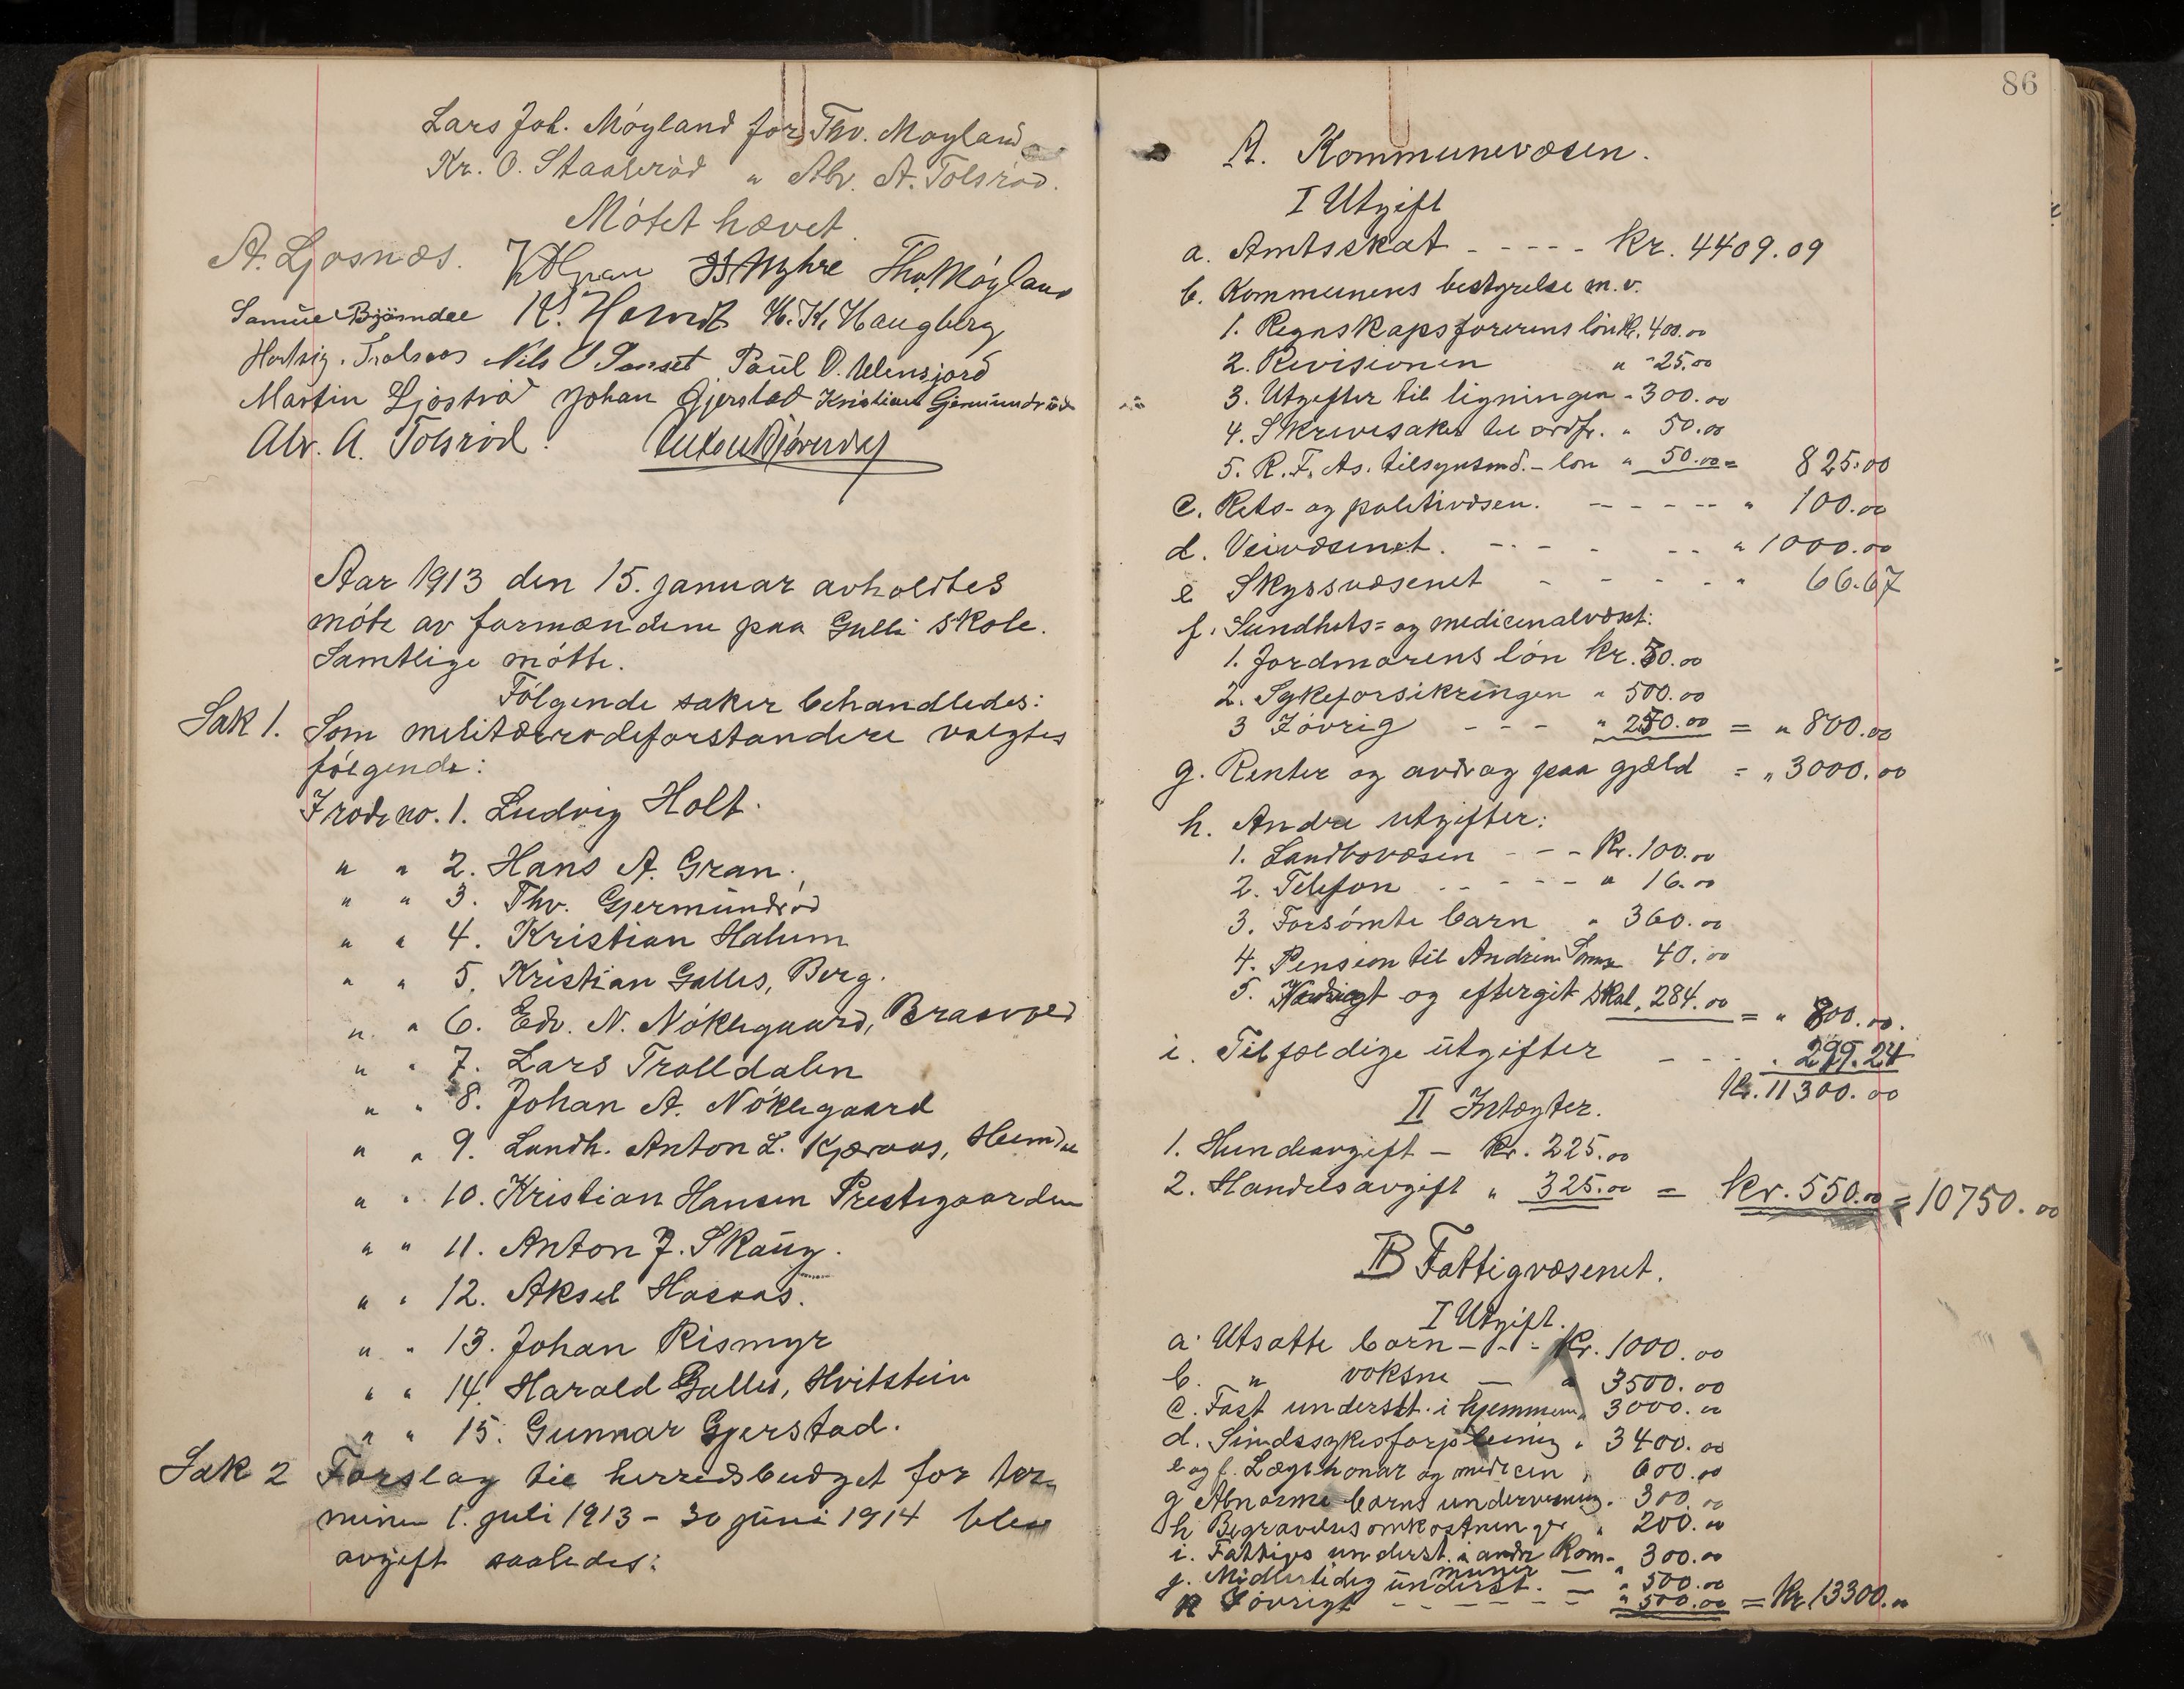 Lars Joh. Møyland for Thv. Møyland
Kr. O. Staalerød " Alv. A. Tolsrød.
Møtet hævet.
A. Ljosnæs. Myhre Thv. Møyland
Samuel Bjørndal K. Horntvedt H. K. Haugberg
Hartvig Nils O Sanset Paul O. Ulensjord
Martin Ljøstrød Johan Gjerstad Kristian Gjermundrød
Alv. A. Tolsrød. Anton Bjørndal
Aar 1913 den 15. januar avholdtes
møte av formændene paa Gulli skole.
Samtlige møtte.
Følgende saker behandledes:
Sak 1. Som militærrodeforstandere valgtes
følgende:
I rode no. 1. Ludvig Holt.
" " 2. Hans A. Gran.
" " 3. Thv. Gjermundrød
" " 4. Kristian Halum
" " 5. Kristian Galles, Berg.
" " 6. Edv. N. Nøklegaard, Braavold
" " 7. Lars Trolldalen
" " 8. Johan A. Nøklegaard
" " 9. Landh. Anton L. Kjæraas,
" " 10. Kristian Hansen Prestegaarden
" " 11. Anton J. Skaug.
" " 12. Aksel Hasaas.
" " 13. Johan Rismyr
" " 14. Harald Galles, Hvitstein
" " 15. Gunnar Gjerstad.
Sak 2 Forslag til herredsbudget for ter-
minen 1. juli 1913 - 30 juni 1914 blev
avgift saaledes:
86
A. Kommunevæsen.
I Utgift
a. Amtsskat - - - - - Kr. 4409.09
b. Kommunens bestyrelse m.v.
1. Regnskapsførerens løn Kr. 400.00
2. Revisionen " 25.00
3. Utgifter til ligningen - 300.00
4. Skrivesaker til ordf. " 50.00
5. R. F. As. tilsynsmd. - løn " 50.00 = 825.00
c. Rets- og politivæsen. - - - - - " 100.00
d. Veivæsenet. - - - - - " 1000.00
e Skyssvæsenet - - - - - " 66.67
f. Sundhets= og medicinalvæs.:
1. Jordmorens løn Kr. 50.00
2. Sykeforsikringen " 500.00
3 Iøvrig - - - " 250.00 = " 800.00
g. Renter og avdrag paa gjæld = " 3000.00
h. Andre utgifter:
1. Landbovæsen - - - Kr. 100.00
2. Telefon - - - - - " 16.00
3. Forsømte barn " 360.00
4. Pension til Andrine 40.00
5. og eftergit skat. 284.00 = " 800.00.
i. Tilfældige utgifter - - - " 299.24
Kr. 11300.00
II Intægter.
1. Hundeavgift - Kr. 225.00
2. Handelsavgift " 325.00 = Kr. 550.00 = 10750.00
B Fattigvæsenet.
I Utgift.
a. Utsatte barn - - - Kr. 1000.00
b. " voksne - " 3500.00
c. Fast underst. i hjemmene " 3000.00
d. Sindssykes forpleining " 3400.00
e og f. Lægehonor og medicin " 600.00
g Abnorme barns undervisning. 300.00
h Begravelsesomkostninger " 200.00
i. Fattiges underst. i andre Kom-
muner - " 300.00
j. Midlertidig underst. - " 500.00
k Iøvrigt - - - - - - " 500.00 = Kr. 13300.00